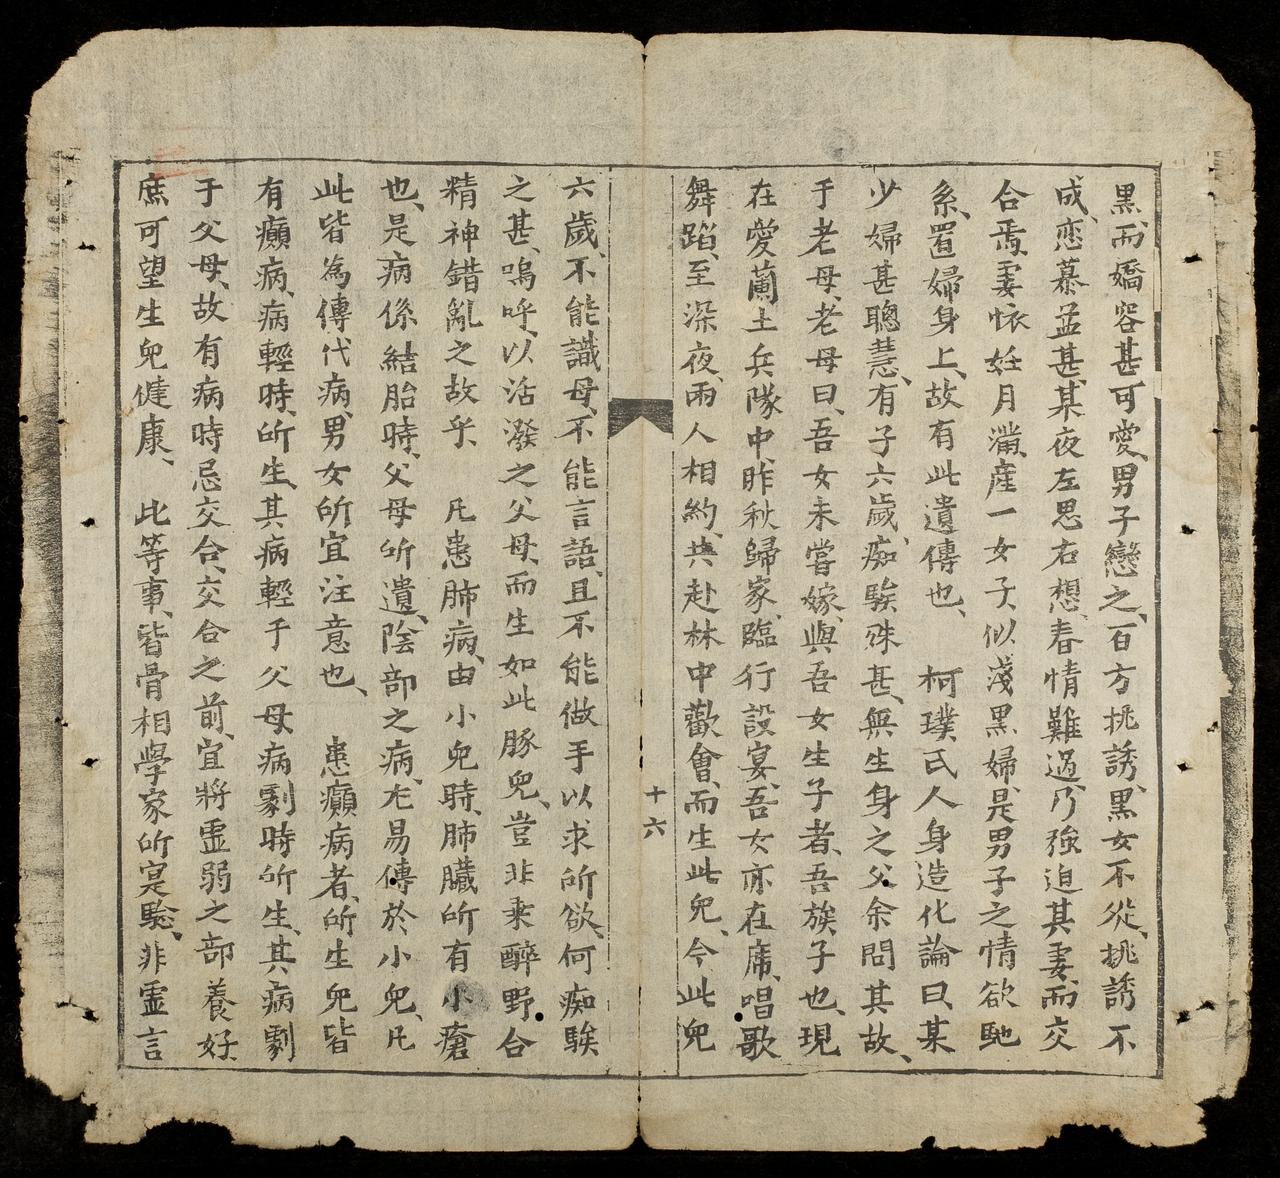 黑、而嬌容甚可愛、男子戀之、百方挑誘、黑女不從、挑誘不
成、恋慕益甚、某夜左思右想、春情難遏、乃強迫其妻、而交
合焉、妻懷妊月滿、產一女子、似淺黑婦、是男子之情欲馳
系、置婦身上、故有此遺傳也、　柯璞氏人身造化論曰、某
少婦甚聰慧、有子六歲、痴騃殊甚、無生身之父、余問其故、
于老母、老母曰、吾女未嘗嫁、與吾女生子者、吾族子也、現
在愛蘭土兵隊中、昨秋歸家、臨行設宴、吾女亦在席、唱歌
舞蹈、至深夜、兩人相約、共赴林中歡會、而生此兒、今此兒
十六
六歲、不能識母、不能言語、且不能做手以求所欲、何痴騃
之甚、嗚呼、以活潑之父母、而生如此豚兒、豈非乘醉野合
精神錯亂之故乎　凡患肺病、由小兒時、肺臟所有小瘡
也、是病係結胎時、父母所遺、陰部之病、尤易傳於小兒、凡
此皆為傳代病、男女所宜注意也、　患癲病者、所生兒皆
有癲病、病輕時、所生、其病輕于父母病劇時所生、其病劇
于父母、故有病時忌交合、交合之前、宜將虛弱之部養好
庶可望生兒健康、　此等事、皆骨相學家所寔驗、非虛言